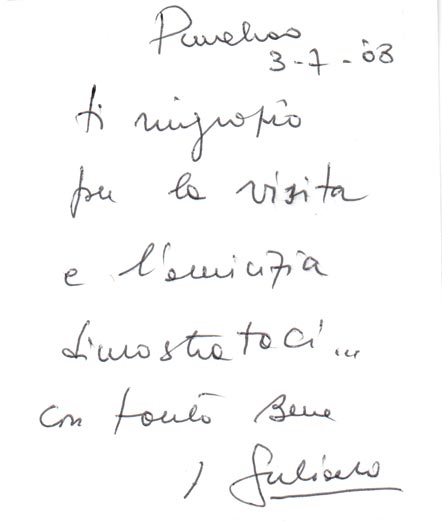 3-7-'08
ti ringrazio
per la visita
e l'amicizia
dimostrataci...
con tanto Bene
Giuliano